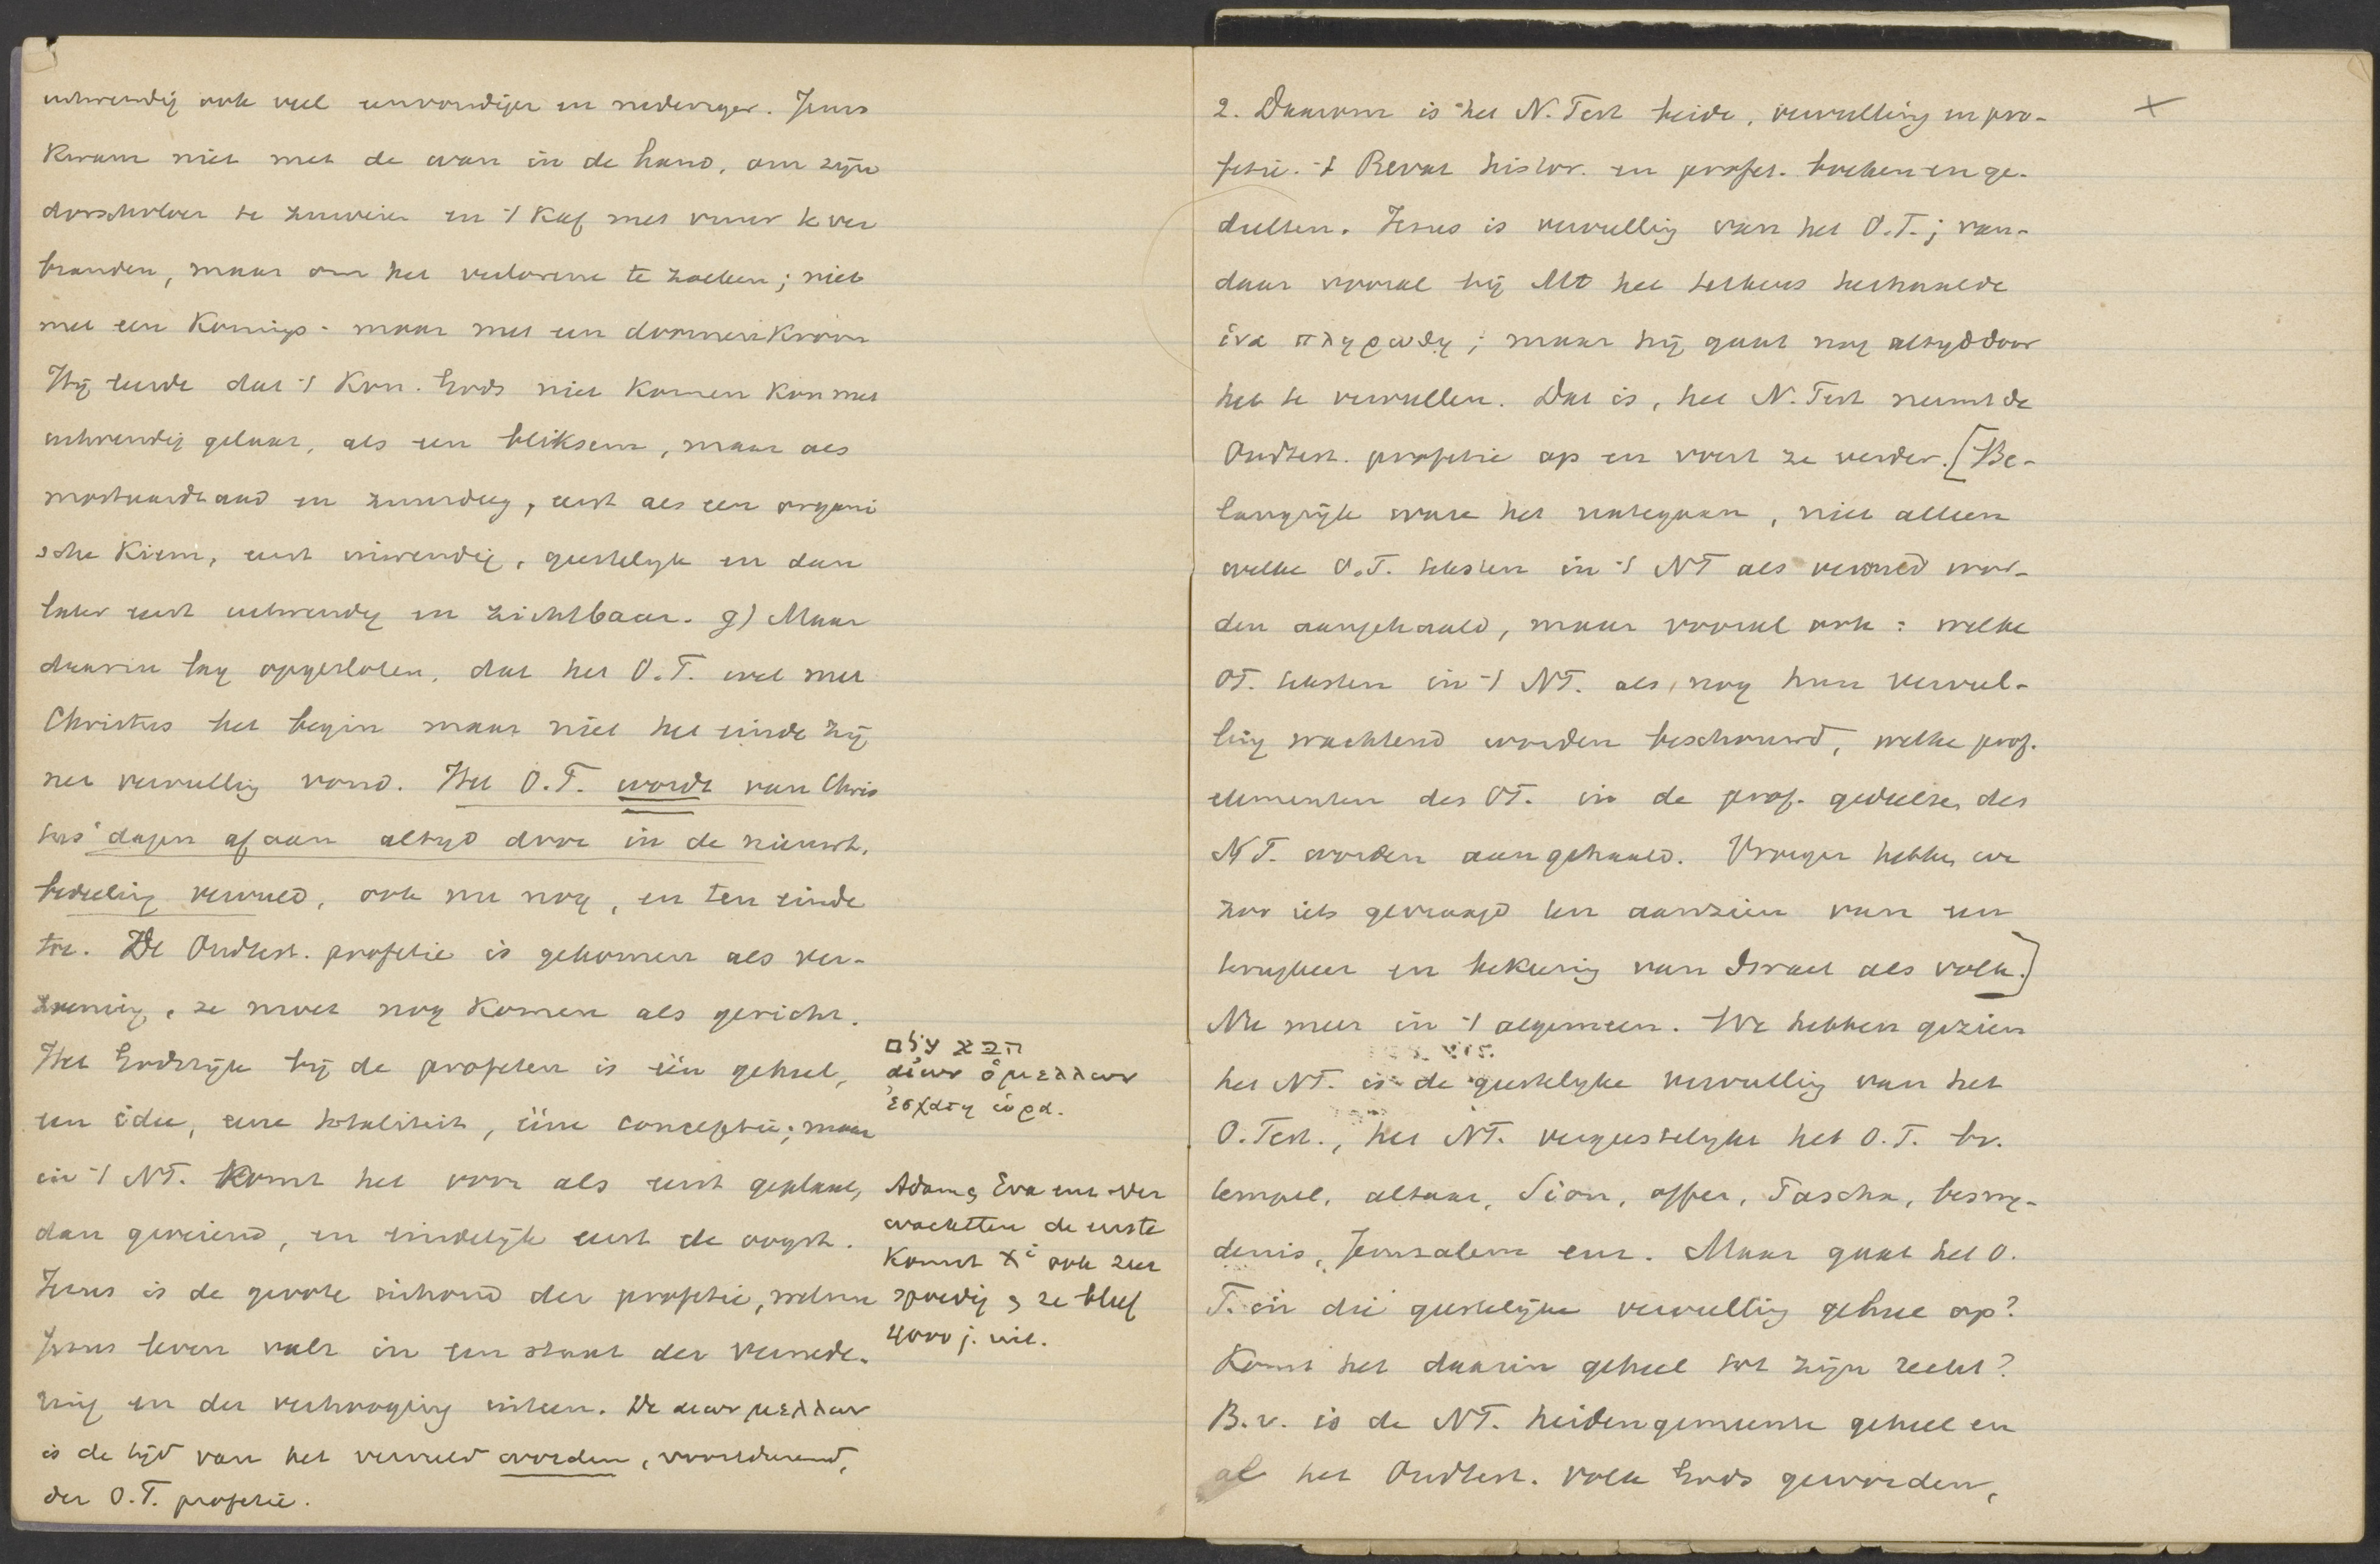 uitwendig ook veel eenvoudiger en nederiger. Jezus
kwam niet met de wan in de hand, om zijn
dorschvloer te zuiveren en 't kaf met vuur te ver
branden, maar om het verlorene te zoeken; niet
met een konings- maar met een doornenkroon
Hij leerde dat 't Kon. Gods niet komen kon met
uitwendig gelaat, als een bliksem, maar als
mostaardzaad en zuurdeeg, eerst als een organi
sche kiem, eerst inwendig, geestelijk en dan
later eerst uitwendig en zichtbaar. g) Maar
daarin lag opgesloten, dat het O.T. wel met
Christus het begin maar niet het einde zij
ner vervulling vond. Het O.T. wordt van Chris
tus' dagen af aan altijd door in de nieuwt.
bedeeling vervuld, ook nu nog, en ten einde
toe. De Oudtest. profetie is gekomen als ver-
zoening, ze moet nog komen als gericht.
Het Godsrijk bij de profeten is één geheel,
een idee, eene totaliteit, ééne conceptie; maar
in 't NT. komt het voor als eerst geplant,
dan groeiend, en eindelijk eerst de oogst.
Jezus is de groote inhoud der profetie, welnu
Jezus leven valt in een staat der vernede-
ring en der verhooging uiteen. De αιων μελλων
is de tijd van het vervuld worden, voortdurend,
der O.T. profetie.
עולם הבא
αἰων ὁ μελλων
ἐσχάτη ὡρα.
Adam & Eva enz. ver
wachtten de eerste
komst Xi ook zeer
spoedig & ze bleef
4000 j. uit.
2. Daarom is het N. Test beide, vervulling en pro-
fetie. 't Bevat histor. en profet. boeken en ge-
deelten. Jezus is vervulling van het O.T.; van-
daar vooral bij Mt het telkens herhaalde
ἱνα πληρωθῃ; maar hij gaat nog altijd door
het te vervullen. Dat is, het N. Test neemt de
Oudtest. profetie op en voert ze verder. [Be-
langrijk ware het nategaan, niet alleen
welke O.T. teksten in 't NT als vervuld wor-
den aangehaald, maar vooral ook: welke
OT. teksten in 't NT. als nog hun vervul-
ling wachtend worden beschouwd, welke prof.
elementen des OT. in de prof. gedeelten des
NT. worden aangehaald. Vroeger hebben we
zoo iets gevraagd ten aanzien van een
terugkeer en bekeering van Israel als volk.]
Nu meer in 't algemeen. We hebben gezien
het NT. is de geestelijke vervulling van het
O.Test., het NT. vergeestelijkt het O.T. bv.
tempel, altaar, Sion, offer, Pascha, besnij-
denis, Jeruzalem enz. Maar gaat het O.
T. in die geestelijke vervulling geheel op?
Komt het daarin geheel tot zijn recht?
B.v. is de NT. heidengemeente geheel en
al het Oudtest. volk Gods geworden,